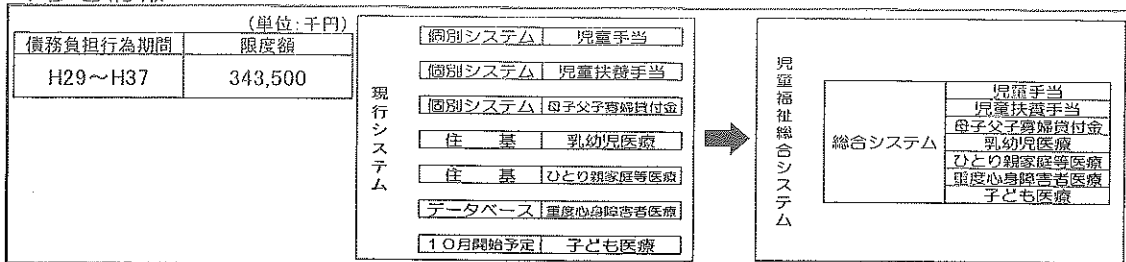 (単位:千円)
債務負担行為期間 限度額
H29～H37 343,500
現行システム
個別システム 児童手当
個別システム 児童扶養手当
個別システム 母子父子寡婦貸付金
住 基 乳幼児医療
住 基 ひとり親家庭等医療
データベース 重度心身障害者医療
10月開始予定 子ども医療
児童福祉総合システム
総合システム
児童手当
児童扶養手当
母子父子寡婦貸付金
乳幼児医療
ひとり親家庭等医療
重度心身障害者医療
子ども医療